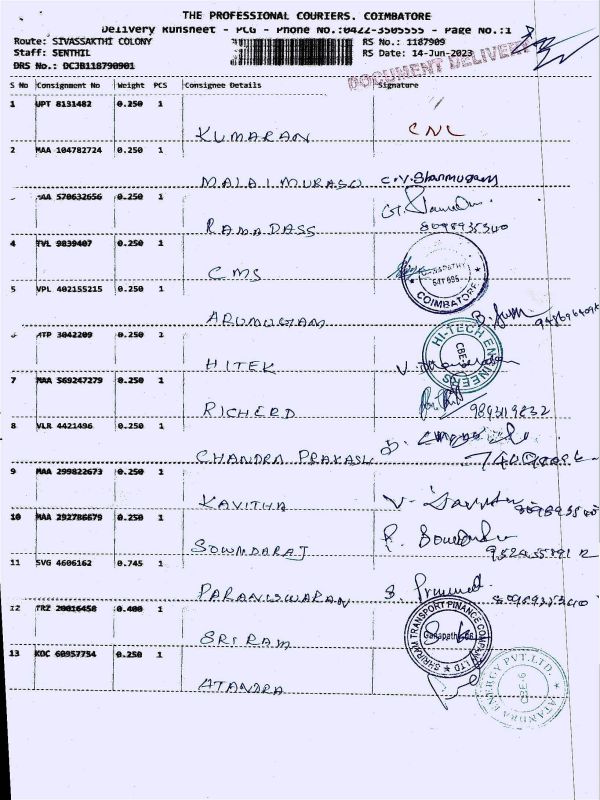 THE PROFESSIONAL COURIERS. COIMBATORE
Delivery Runsheet - PCG - Phone No.:0422-3505555 - Page No.:1
Route: SIVASSAKTHI COLONY RS No.: 1187909
Staff: SENTHIL RS Date: 14-Jun-2023
DRS No.: DCJB118790901
DOCUMENT DELIVERY
S No Consignment No Weight PCS Consignee Details Signature
1 UPT 8131482 0.250 1
KUMARAN CNL
2 MAA 104782724 0.250 1
MALAI MURASU C.V. Shanmugam
MAA 570632656 0.250 1
RAMADASS
8098935340
4 TVL 9839407 0.250 1
CMS GANAPATHY COIMBATORE
5 VPL 402155215 0.250 1
ARUMUGAM
ATP 3042209 0.250 1
HITEK HI-TECH ENGINEERS CBE-6
7 MAA 569247279 0.250 1
RICHERD 9843119832
8 VLR 4421496 0.250 1
CHANDRA PRAKASH
9 MAA 299822673 0.250 1
KAVITHA
10 MAA 292786679 0.250 1
SOWNDARAJ
11 SVG 4606162 0.745 1
PARANISWARAN
12 TRZ 20016458 0.400 1
SRI RAM SHRIRAM TRANSPORT FINANCE COMPANY LTD
13 KOC 60957754 0.250 1
ATANDRA ATANDRA ENERGY PVT.LTD. CBE-6